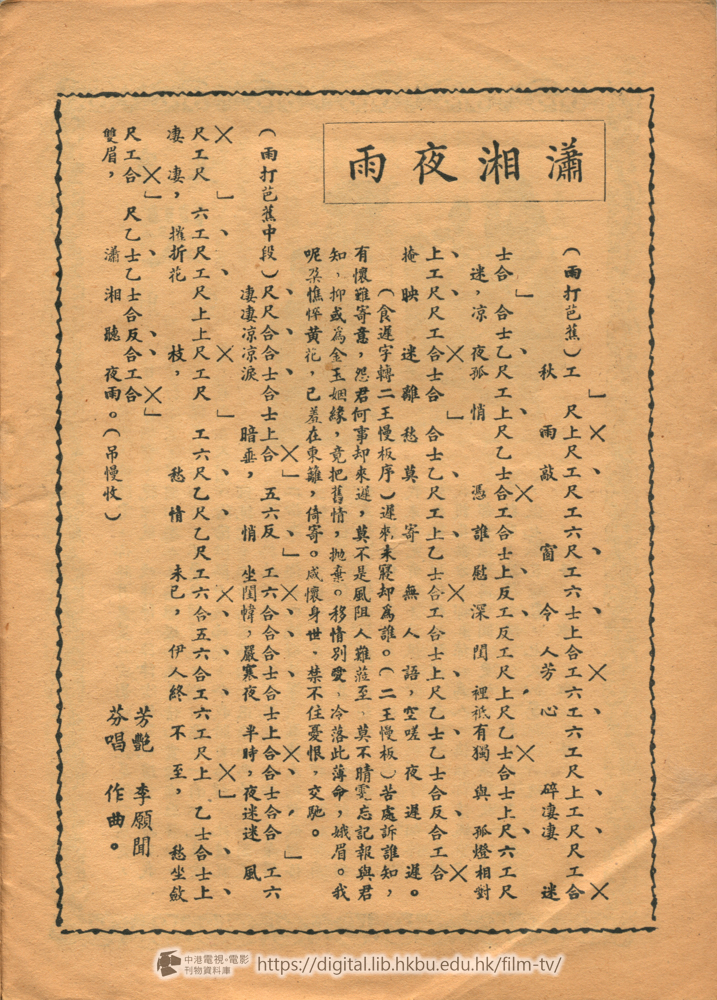 瀟湘夜雨
（雨打芭蕉）工　尺上尺工尺工六尺工六士上合工六工六工尺上工尺尺工合
秋雨敲窗令人芳心碎凄凄迷
士合　合士乙尺工上尺乙士合工合士上反工反工尺上尺乙士合士上尺六工尺
迷，凉夜孤悄憑誰慰深閨裡祇有獨與孤燈相對
上工尺尺工合士合　合士乙尺工上乙士合工合士上尺乙士乙士合反合工合
掩映迷離愁莫寄無人語，空嗟夜遲遲。
（食遲字轉二王慢板序）遲來未寢却為誰。（二王慢板）苦處訴誰知，
有懷難寄意，怨君何事却來遲，莫不是風阻人難蒞至、莫不晴雯忘記報與君
知，抑或為金玉姻緣，竟把舊情，拋棄。移情別愛、冷落此薄命，娥眉。我
呢朶憔悴黄花，已羞在東籬，倚寄。感懷身世，禁不住憂恨，交馳。
（雨打芭蕉中段）尺尺合合士合士上合　五六反　工六合合合士合士上合合士合合　工六
凄凄凉凉淚暗垂，悄坐閨幃，嚴寒夜半時，夜迷迷風
尺工尺　六工尺工尺上上尺工尺　工六尺乙尺乙尺工六合五六合工六工尺上　乙士合士上
凄凄，摧折花枝，愁情未已，伊人終不至，愁坐斂
尺工合　尺乙士乙士合反合工合
雙眉，瀟湘聽夜雨。（吊慢收）
芳艷芬唱
李願聞作曲。
中港電視·電影
刊物資料庫
https://digital.lib.hkbu.edu.hk/film-tv/